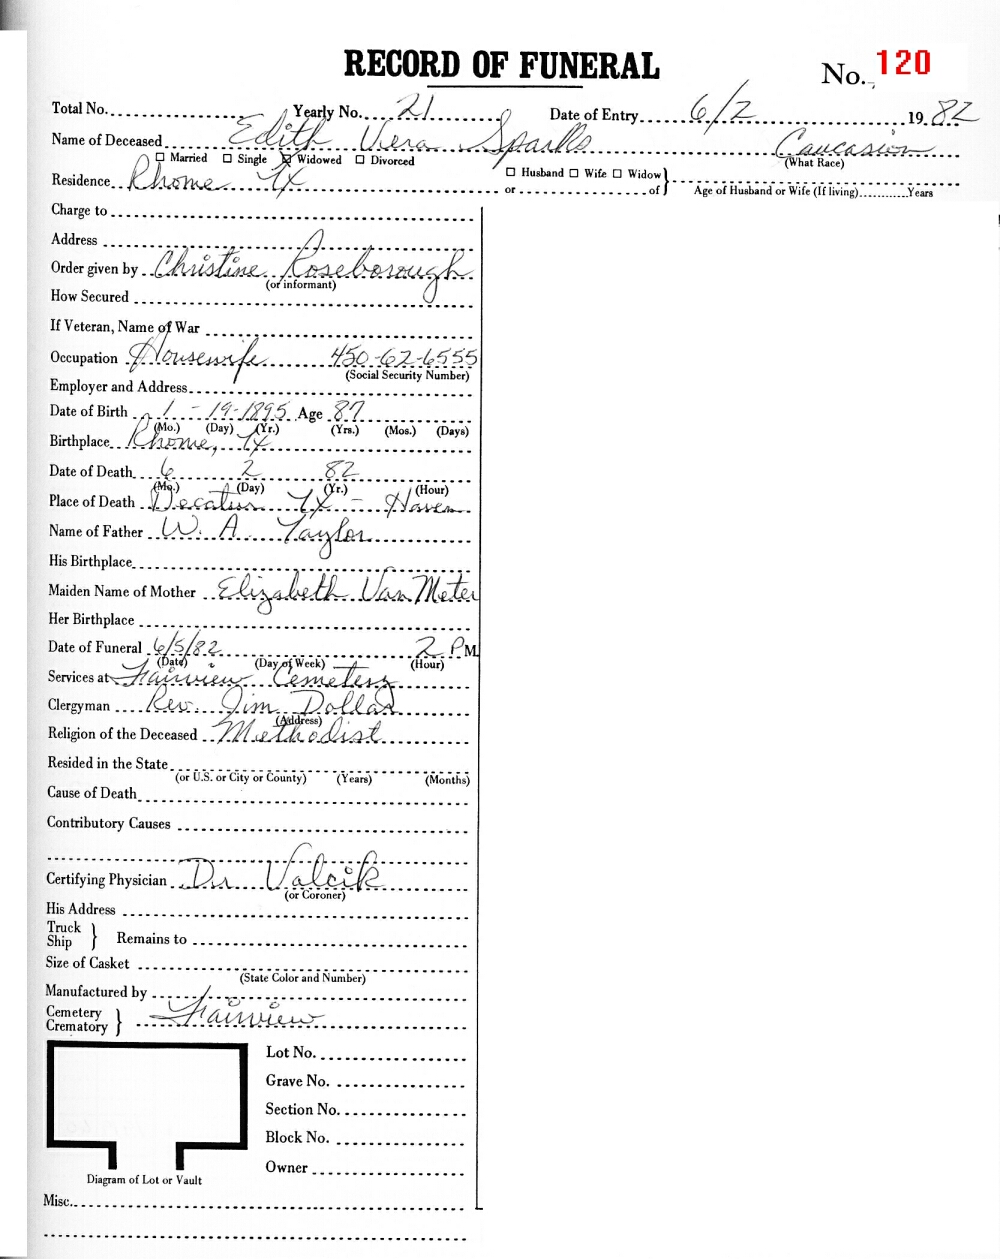 RECORD OF FUNERAL
No. 120
Total No. Yearly No. 21 Date of Entry 6/2 1982
Name of Deceased Edith Vera Sparks Caucasion
☐ Married ☐ Single ☒ Widowed ☐ Divorced (What Race)
Residence Rhome Tx ☐ Husband ☐ Wife ☐ Widow}
or of} Age of Husband or Wife (If living) Years
Charge to
Address
Order given by Christine Roseborough
(or informant)
How Secured
If Veteran, Name of War
Occupation Housewife 450-62-6555
(Social Security Number)
Employer and Address
Date of Birth 1-19-1895 Age 87
(Mo.) (Day) (Yr.) (Yrs.) (Mos.) (Days)
Birthplace Rhome, Tx
Date of Death 6 2 82
(Mo.) (Day) (Yr.) (Hour)
Place of Death Decatur Tx - Haven
Name of Father W. A. Taylor
His Birthplace
Maiden Name of Mother Elizabeth Van Meter
Her Birthplace
Date of Funeral 6/5/82 2 P M.
(Date) (Day of Week) (Hour)
Services at Fairview Cemetery
Clergyman Rev. Jim Dollar
(Address)
Religion of the Deceased Methodist
Resided in the State
(or U.S. or City or County) (Years) (Months)
Cause of Death
Contributory Causes
Certifying Physician Dr Valcik
(or Coroner)
His Address
Truck
Ship } Remains to
Size of Casket
(State Color and Number)
Manufactured by
Cemetery
Crematory } Fairview
Lot No.
Grave No.
Section No.
Block No.
Owner
Diagram of Lot or Vault
Misc.